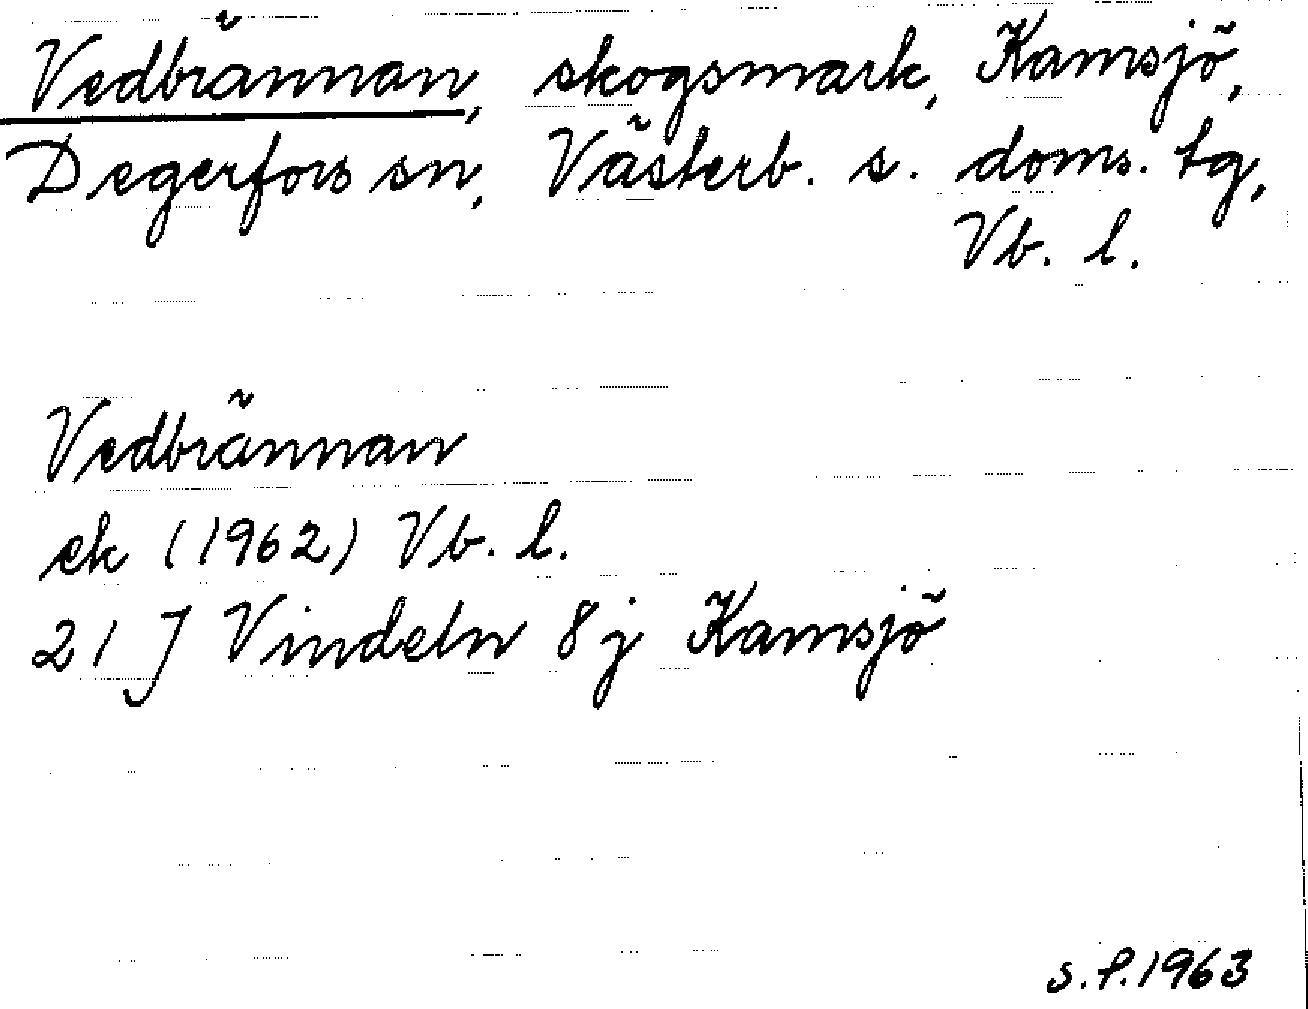 Vedbrännan, skogsmark, Kamsjö,
Degerfors sn, Västerb. s. doms. tg,
Vb. l.
Vedbrännan
ek (1962) Vb. l.
21 J Vindeln 8 j Kamsjö
s.f.1963